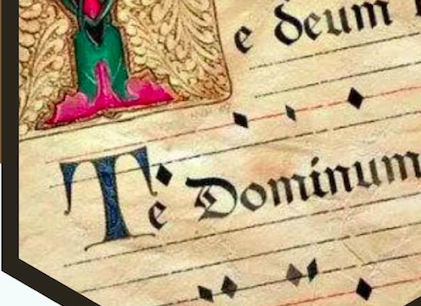 e deum
Te Dominum